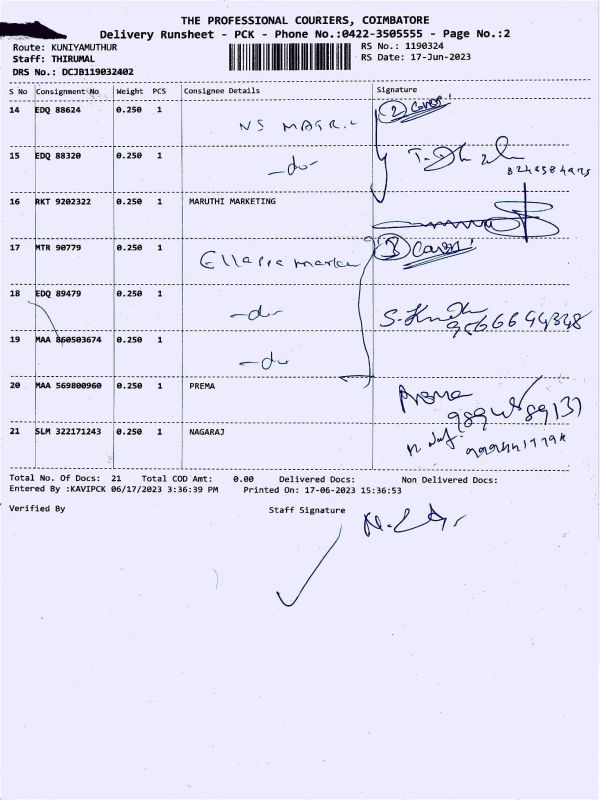 THE PROFESSIONAL COURIERS, COIMBATORE
Delivery Runsheet - PCK - Phone No.:0422-3505555 - Page No.:2
Route: KUNIYAMUTHUR
RS No.: 1190324
Staff: THIRUMAL
RS Date: 17-Jun-2023
DRS No.: DCJB119032402
S No Consignment No Weight PCS Consignee Details Signature
14 EDQ 88624 0.250 1 NS MATR. 2 Cover!
15 EDQ 88320 0.250 1 -do-
16 RKT 9202322 0.250 1 MARUTHI MARKETING
17 MTR 90779 0.250 1 3 Cover!
18 EDQ 89479 0.250 1 -do-
19 MAA 860503674 0.250 1 -do-
20 MAA 569800960 0.250 1 PREMA Prema
21 SLM 322171243 0.250 1 NAGARAJ
Total No. Of Docs: 21 Total COD Amt: 0.00 Delivered Docs: Non Delivered Docs:
Entered By :KAVIPCK 06/17/2023 3:36:39 PM Printed On: 17-06-2023 15:36:53
Verified By Staff Signature